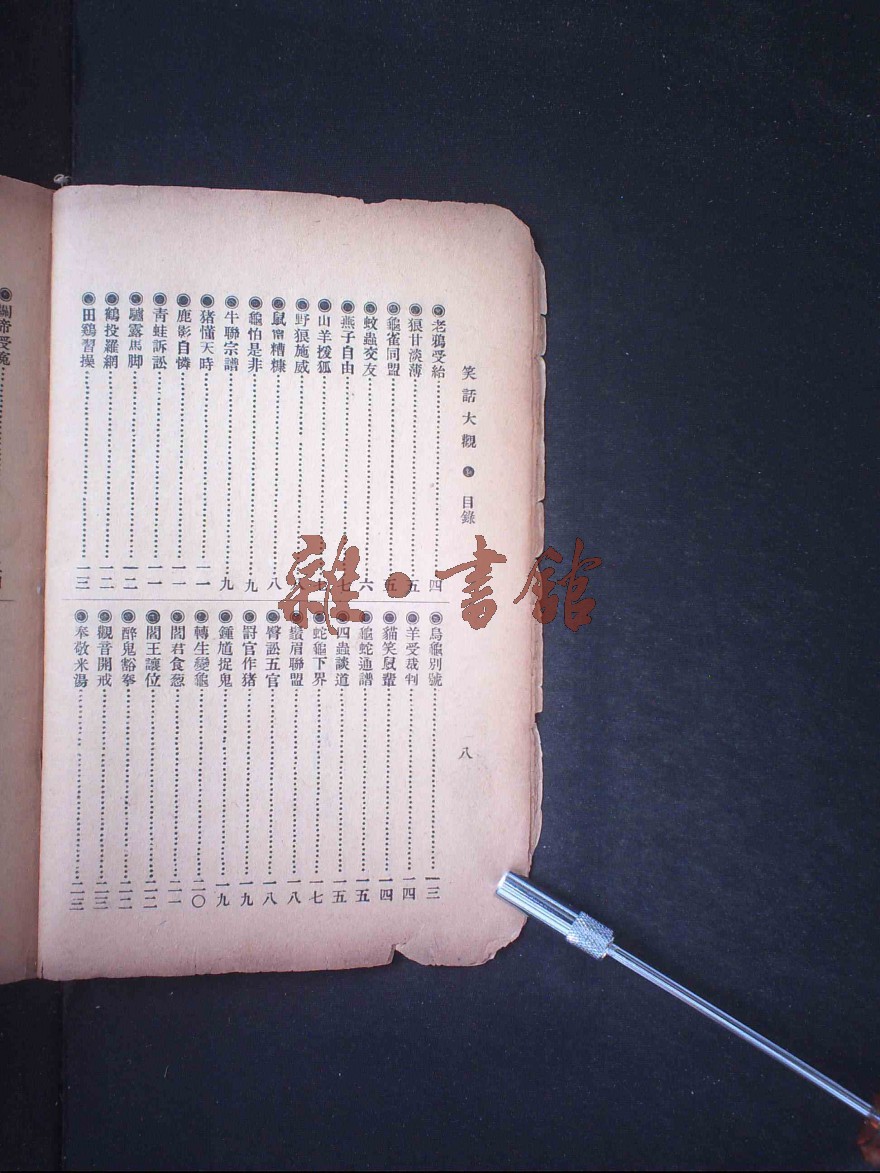 笑話大觀 上 目錄
八
老鴉受給……四
狼甘淡薄……五
龜雀同盟……五
蚊蟲交友……六
燕子自由……七
山羊援狐……七
野狼施威……八
鼠甯糟糠……八
龜怕是非……九
牛聯宗譜……九
猪懂天時……一一
鹿影自憐……一一
青蛙訴訟……一一
驢露馬脚……一二
鶴投羅網……一二
田鷄習操……一三
烏龜別號……一三
羊受裁判……一四
貓笑鼠輩……一四
龜蛇通譜……一五
四蟲談道……一五
蛇龜下界……一七
鬚眉聯盟……一八
臀訟五官……一八
罸官作猪……一九
鍾馗捉鬼……一九
轉生變龜……二〇
閻君食葱……二一
閻王讓位……二二
醉鬼豁拳……二二
觀音開戒……二三
奉敬米湯……二三
關帝受寃
雜·書館